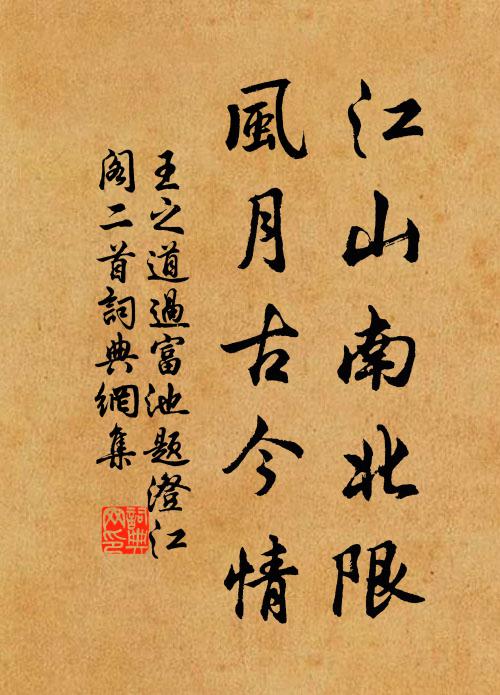 江山南北限
風月古今情
王之道過富池題澄江
閣二首詞典網集
詞典
网印